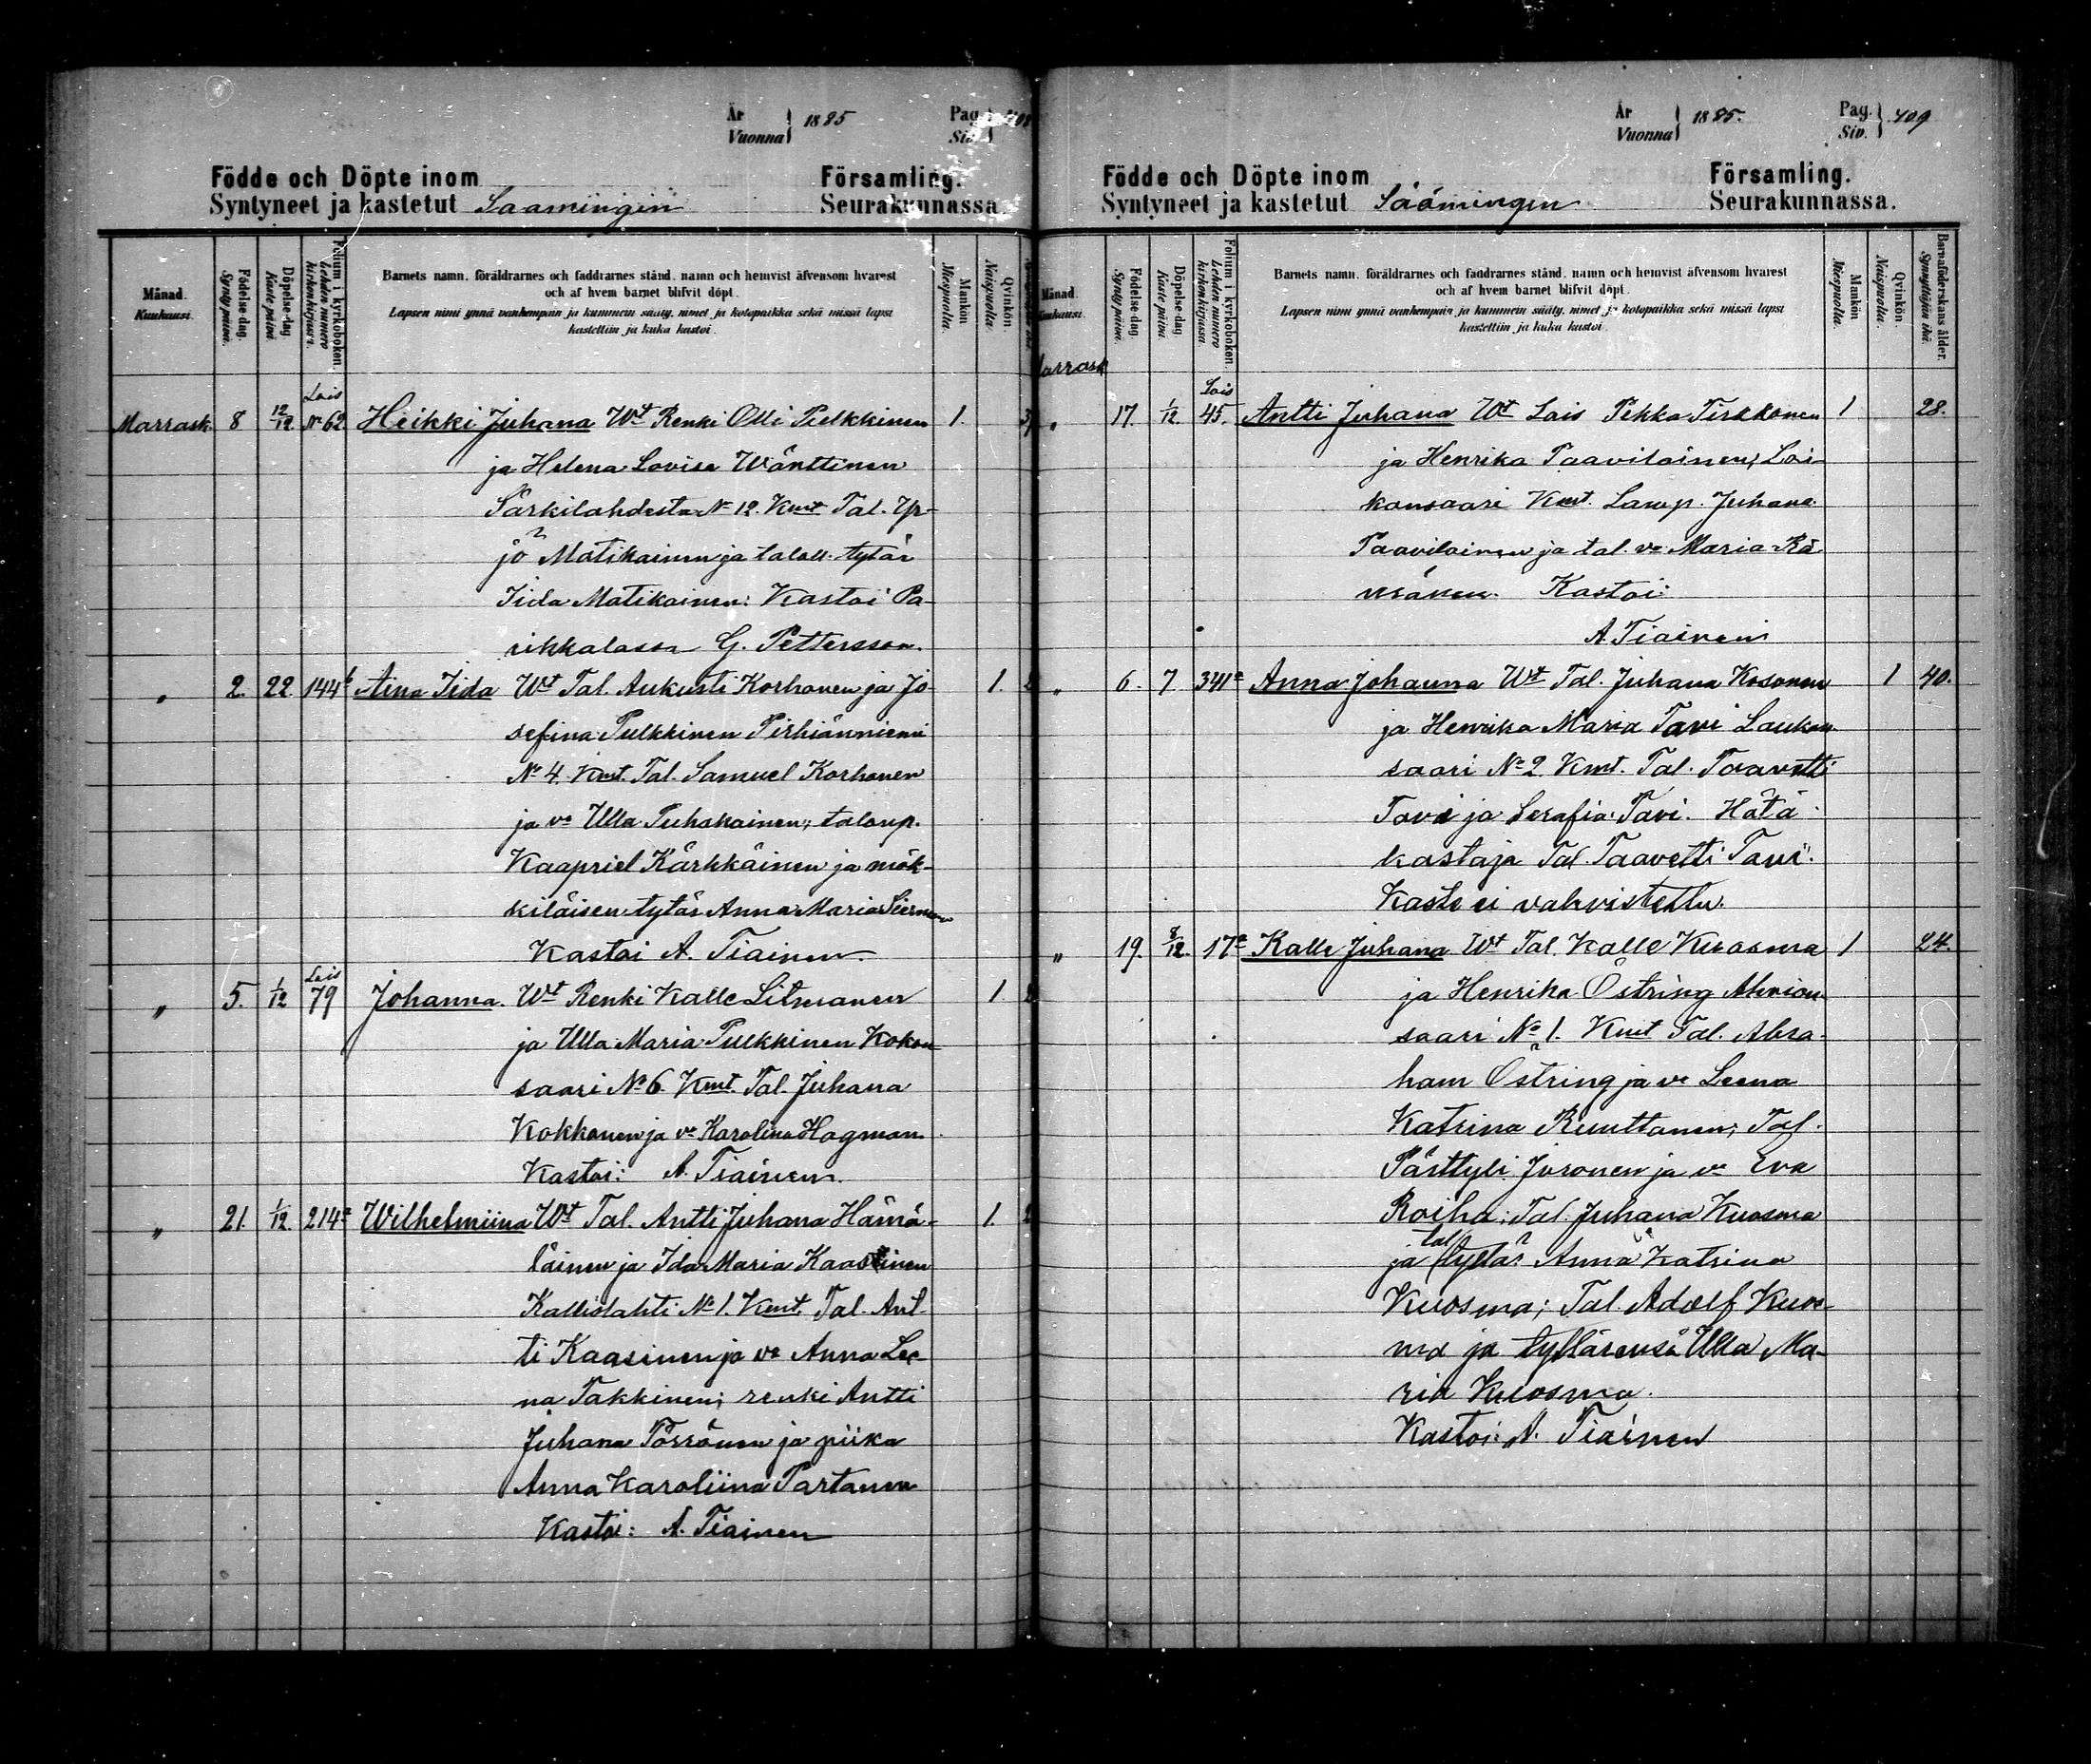 År
Vuonna } 1885
Pag.
Siv. } 408
Födde och Döpte inom Församling.
Syntyneet ja kastetut Saamingin Seurakunnassa.
Månad. Kuukausi.
Födelse-dag. Synty päivä.
Döpelse-dag Kaste päivä.
Folium i kyrkoboken. Lehden numero kirkonkirjassa.
Barnets namn, föräldrarnes och faddrarnes stånd, namn och hemvist äfvensom hvarest
och af hvem barnet blifvit döpt.
Lapsen nimi ynnä vanhempain ja kummein sääty, nimet ja kotopaikka sekä missä lapsi
kastettiin ja kuka kastoi.
Mankön Miespuolta.
Qvinkön. Naispuolta.
Lois
Marrask. 8 12/12 No 62 Heikki Juhana Wt Renki Olli Pulkkinen 1.
ja Helena Lovisa Wänttinen
Särkilahdesta No 12. Kmt Tal. Yr-
jö Matikainen ja talall. tytär
Iida Matikainen. Kastoi Pa-
rikkalassa G. Pettersson.
„ 2. 22 144b Aina Iida Wt Tal. Aukusti Korhonen ja Jo- 1.
sefina Pulkkinen Pirhiänniemi
No 4. Kmt. Tal. Samuel Korhonen
ja vo Ulla Puhakainen; taloup.
Kaapriel Kärkkäinen ja mök-
kiläisen tytär Anna Maria
Kastoi A. Tiainen.
Lois
„ 5. 1/12 79 Johanna. Wt Renki Kalle Litmanen 1.
ja Ulla Maria Pulkkinen Kokon-
saari No 6. Kmt. Tal. Juhana
Kokkonen ja vo Karolina Hagman.
Kastoi: A. Tiainen.
„ 21. 1/12 214a Wilhelmiina Wt Tal. Antti Juhana Hämä- 1.
läinen ja Ida Maria Kaasinen
Kalliolahti No 1. Kmt. Tal. Ant-
ti Kaasinen ja vo Anna Lee-
na Takkinen; renki Antti
Juhana Törrönen ja piika
Anna Karoliina Partanen
Kastoi: A. Tiainen
År
Vuonna } 1885.
Pag.
Siv. } 409
Födde och Döpte inom Församling.
Syntyneet ja kastetut Säämingin Seurakunnassa.
Månad.
Kuukausi.
Födelse-dag. Synty päivä.
Döpelse-dag Kaste päivä.
Folium i kyrkoboken. Lehden numero kirkonkirjassa
Barnets namn, föräldrarnes och faddrarnes stånd, namn och hemvist äfvensom hvarest
och af hvem barnet blifvit döpt.
Lapsen nimi ynnä vanhempain ja kummein sääty, nimet ja kotopaikka sekä missä lapsi
kastettiin ja kuka kastoi.
Mankön Miespuolta.
Qvinkön. Naispuolta.
Barnaföderskans ålder. Synnyttäjän ikä.
Marrask
Lois
„ 17. 1/12. 45. Antti Juhana Wt Lois Pekka Tirkkonen 1 28.
ja Henrika Paavilainen, Loi-
kansaari Kmt. Lamp. Juhana
Paavilainen ja tal. vo Maria Rä-
Kastoi:
A. Tiainen
„ 6. 7. 341a Anna Johanna Wt Tal. Juhana Kosonen 1 40.
ja Henrika Maria Tavi Laukan-
saari No 2. Kmt. Tal. Taavetti
Tavi ja Serafia Tavi. Hätä-
kastaja Tal. Taavetti Tavi.
Kaste ei vahvistettu.
„ 19. 8/12. 17a Kalle Juhana Wt Tal. Kalle Kuosma 1 24.
ja Henrika Östring Ahvion-
saari No 1. Kmt Tal. Abra-
ham Östring ja vo Leena
Katrina Ruuttanen; Tal.
Pärttyli Juronen ja vo Eva
Roiha; Tal. Juhana Kuosma
ja tal tytär Anna Katrina
Kuosma; Tal. Adolf Kuos-
ma ja tyttärensä Ulla Ma-
ria Kuosma.
Kastoi: A. Tiainen